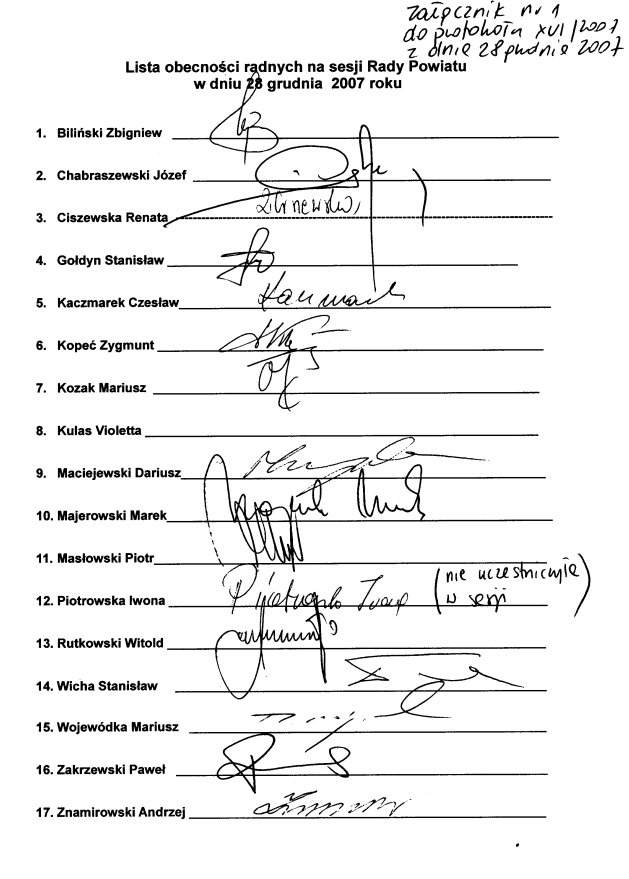 załącznik nr 1
do protokołu XVI/2007
z dnia 28 grudnia 2007
Lista obecności radnych na sesji Rady Powiatu
w dniu 28 grudnia 2007 roku
1. Biliński Zbigniew
2. Chabraszewski Józef
3. Ciszewska Renata
4. Gołdyn Stanisław
5. Kaczmarek Czesław
6. Kopeć Zygmunt
7. Kozak Mariusz
8. Kulas Violetta
9. Maciejewski Dariusz
10. Majerowski Marek
11. Masłowski Piotr
12. Piotrowska Iwona (nie uczestniczyła
w sesji)
13. Rutkowski Witold
14. Wicha Stanisław
15. Wojewódka Mariusz
16. Zakrzewski Paweł
17. Znamirowski Andrzej